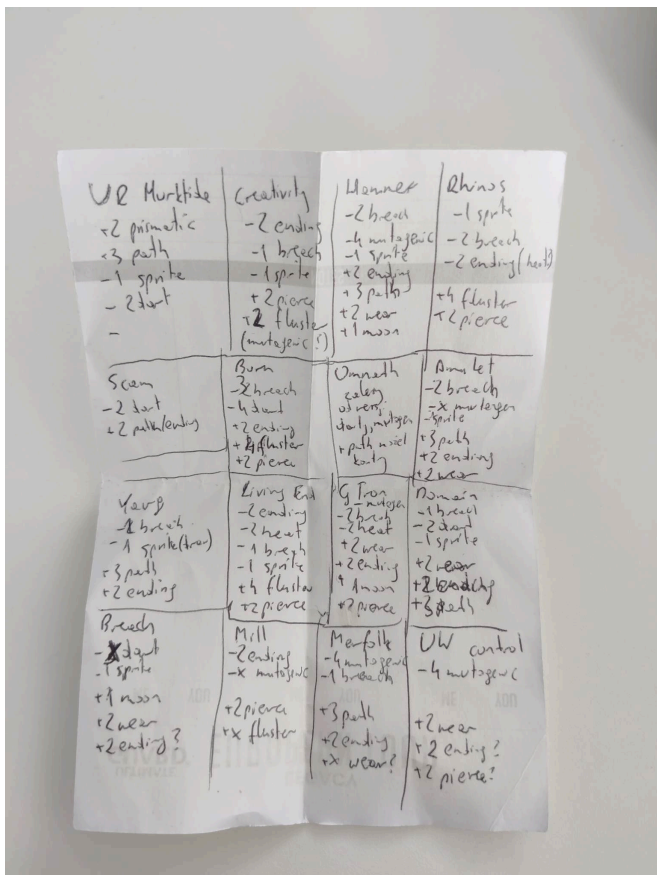 UR Murktide
+2 prismatic
+3 path
-1 sprite
-2 dart
-
Creativity
-2 ending
-1 breach
-1 sprite
+2 pierce
+2 fluster
(mutagenic?)
Hammer
-2 breach
-4 mutagenic
-1 sprite
+2 ending
+3 path
+2 wear
+1 moon
Rhinos
-1 sprite
-2 breach
-2 ending (heat)
+4 fluster
+2 pierce
Scam
-2 dart
+2 path/ending
Burn
-2 breach
-4 dart
+2 ending
+4 fluster
+2 pierce
Omnath
dart, mutagen
+path
Amulet
-2 breach
-x mutagen
-sprite
+3 path
+2 ending
+2 wear
Yawg
-1 breach
-1 sprite
+3 path
+2 ending
Living End
-2 ending
-2 heat
-1 breach
-1 sprite
+4 fluster
+2 pierce
G Tron
-mutagen
-2 breach
-2 heat
+2 wear
+2 ending
+1 moon
+2 pierce
Domain
-1 breach
-2 dart
-1 sprite
+2 wear
+2 ending
+3 path
Breach
-dart
-1 sprite
+1 moon
+2 wear
+2 ending?
Mill
-2 ending
-x mutagenic
+2 pierce
+x fluster
Merfolk
-4 mutagenic
-1 breach
+3 path
+2 ending
+x wear?
UW control
-4 mutagenic
+2 wear
+2 ending?
+2 pierce?